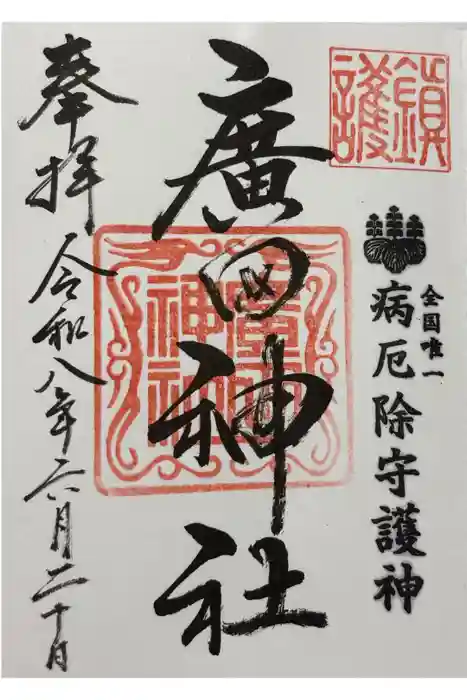 鎮護
全国唯一
病厄除守護神
廣田神社
廣田
神社
奉拝
令和八年六月二十日